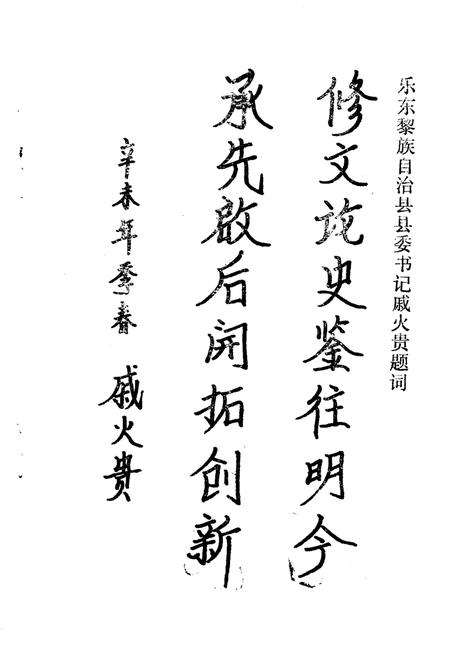 乐东黎族自治县县委书记戚火贵题词
修文论史鉴往明今
承先啟后开拓创新
辛未年季春 戚火贵